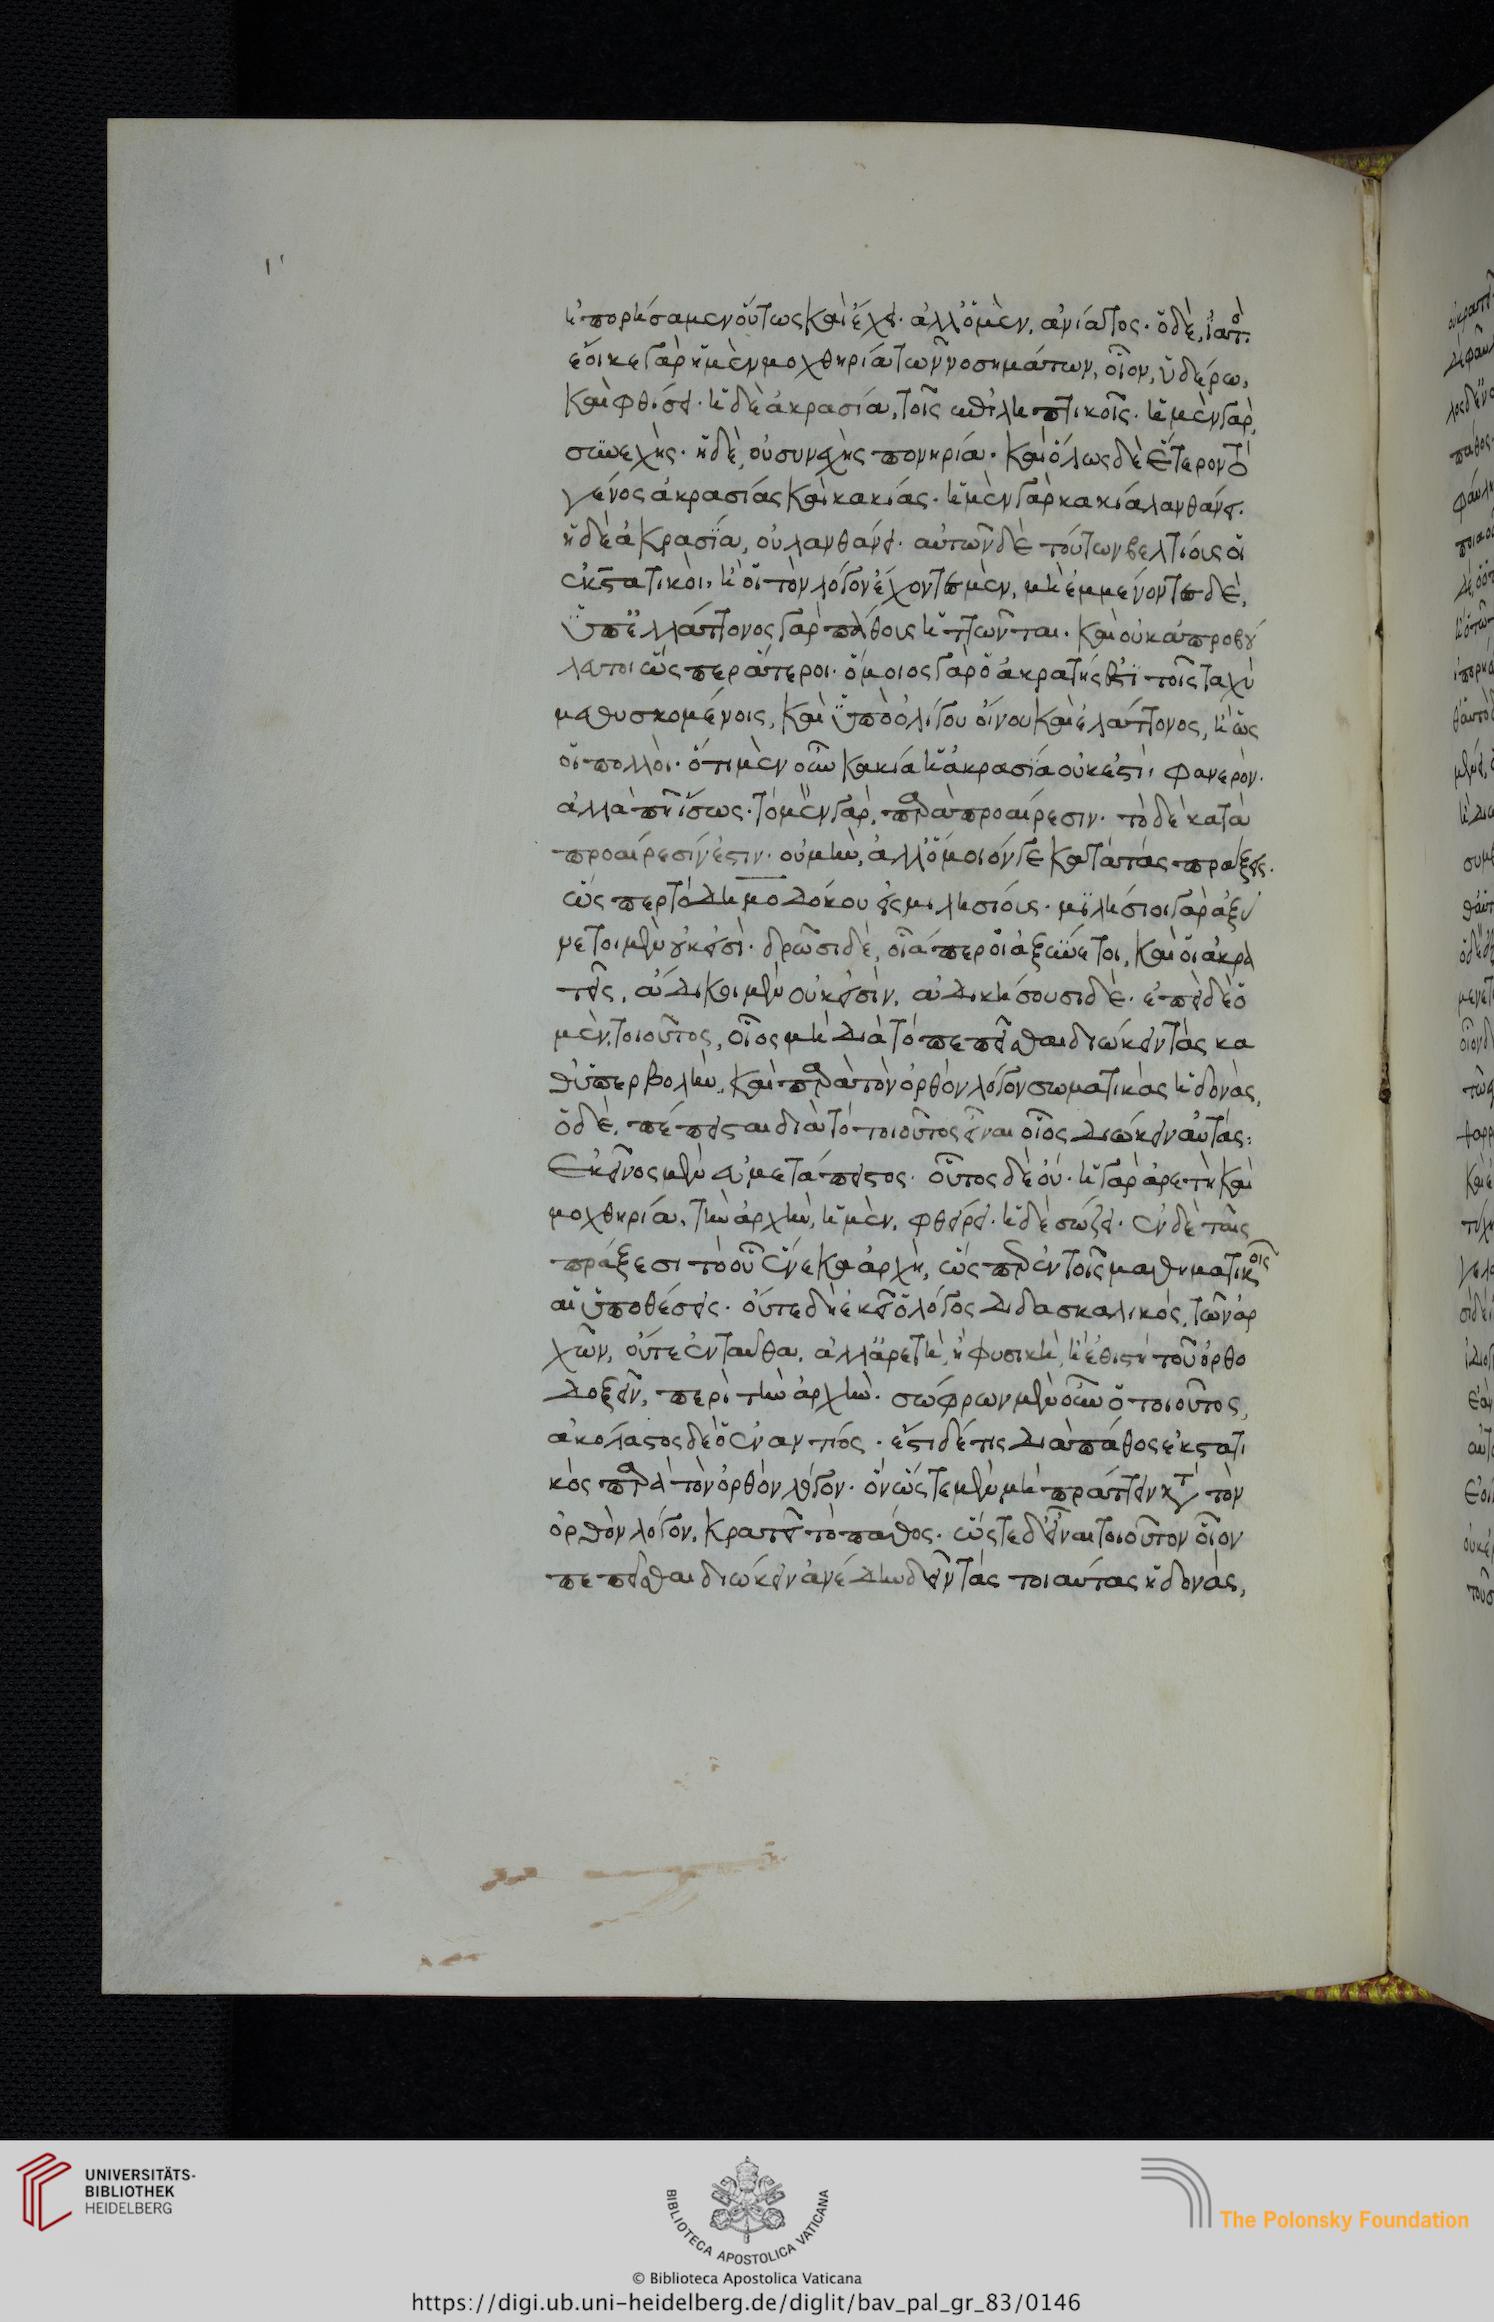 ἠπορήσαμεν οὕτως καὶ ἔχει. ἀλλ' ὁ μὲν, ἀνίατος. ὁ δὲ, ἰατὸ.
ἔοικε γὰρ ἡ μὲν μοχθηρία τῶν νοσημάτων, οἷον, ὑδέρω,
καὶ φθίσει. ἡ δὲ ἀκρασία, τοῖς ἐπιληπτικοῖς. ἡ μὲν γὰρ,
συνεχὴς. ἡ δὲ, οὐ συνεχὴς πονηρία. καὶ ὅλως δὲ ἕτερον τὸ
γένος ἀκρασίας καὶ κακίας. ἡ μὲν γὰρ κακία λανθάνει.
ἡ δὲ ἀκρασία, οὐ λανθάνει. αὐτῶν δὲ τούτων βελτίους οἱ
ἐκστατικοὶ, ἢ οἱ τὸν λόγον ἔχοντες μὲν, μὴ ἐμμένοντες δὲ,
ὑπ' ἐλλάττονος γὰρ πάθους ἡττῶνται. καὶ οὐκ ἀπροβού
λευτοι ὥσπερ ἅτεροι. ὅμοιος γὰρ ὁ ἀκρατής ἐστι τοῖς ταχὺ
μεθυσκομένοις, καὶ ὑπὸ ὀλίγου οἴνου καὶ ἐλάττονος, ἢ ὡς
οἱ πολλοὶ. ὅτι μὲν οὖν κακία ἡ ἀκρασία οὐκ ἐστὶ, φανερὸν.
ἀλλὰ πῆ ἴσως. τὸ μὲν γὰρ, παρὰ προαίρεσιν. τὸ δὲ κατὰ
προαίρεσίν ἐστιν. οὐ μὴν, ἀλλ' ὅμοιόν γε κατὰ τὰς πράξεις.
ὥσπερ τὸ Δημοδόκου εἰς μιλησίους. μιλήσιοι γὰρ ἀξύ
νετοι μὲν οὐκ εἰσὶ. δρῶσι δὲ, οἷά περ οἱ ἀξύνετοι, καὶ οἱ ἀκρα
τεῖς, ἄδικοι μὲν οὐκ εἰσὶν, ἀδικήσουσι δὲ. ἐπεὶ δὲ ὁ
μὲν, τοιοῦτος, οἷος μὴ διὰ τὸ πεπεῖσθαι διώκειν τὰς κα
θ' ὑπερβολὴν, καὶ παρὰ τὸν ὀρθὸν λόγον σωματικὰς ἡδονὰς,
ὁ δὲ, πέπεισται διὰ τὸ τοιοῦτος εἶναι οἷος διώκειν αὐτάς:
Ἐκεῖνος μὲν ἀμετάπειστος. οὗτος δὲ οὐ. ἡ γὰρ ἀρετὴ καὶ
μοχθηρία, τὴν ἀρχὴν, ἡ μὲν, φθείρει. ἡ δὲ σώζει. ἐν δὲ ταῖς
πράξεσι τὸ οὗ ἕνεκα ἀρχὴ, ὥσπερ ἐν τοῖς μαθηματικοῖς
αἱ ὑποθέσεις. οὔτε δὴ ἐκεῖ ὁ λόγος διδασκαλικός, τῶν ἀρ
χῶν, οὔτε ἐνταῦθα. ἀλλ' ἀρετὴ, ἢ φυσικὴ, ἢ ἐθιστὴ τοῦ ὀρθο
δοξεῖν, περὶ τὴν ἀρχὴν. σώφρων μὲν οὖν ὁ τοιοῦτος,
ἀκόλαστος δὲ ὁ ἐναντίος. ἔστι δέ τις διὰ πάθος ἐκστατι
κὸς παρὰ τὸν ὀρθὸν λόγον. ὃν ὥστε μὲν μὴ πράττειν κατὰ τὸν
ὀρθὸν λόγον, κρατεῖ τὸ πάθος. ὥστε δ' εἶναι τοιοῦτον οἷον
πεπεῖσθαι διώκειν ἀνέδην δεῖν τὰς τοιαύτας ἡδονάς,
UNIVERSITÄTS-
BIBLIOTHEK
HEIDELBERG
BIBLIOTECA APOSTOLICA VATICANA
© Biblioteca Apostolica Vaticana
The Polonsky Foundation
https://digi.ub.uni-heidelberg.de/diglit/bav_pal_gr_83/0146